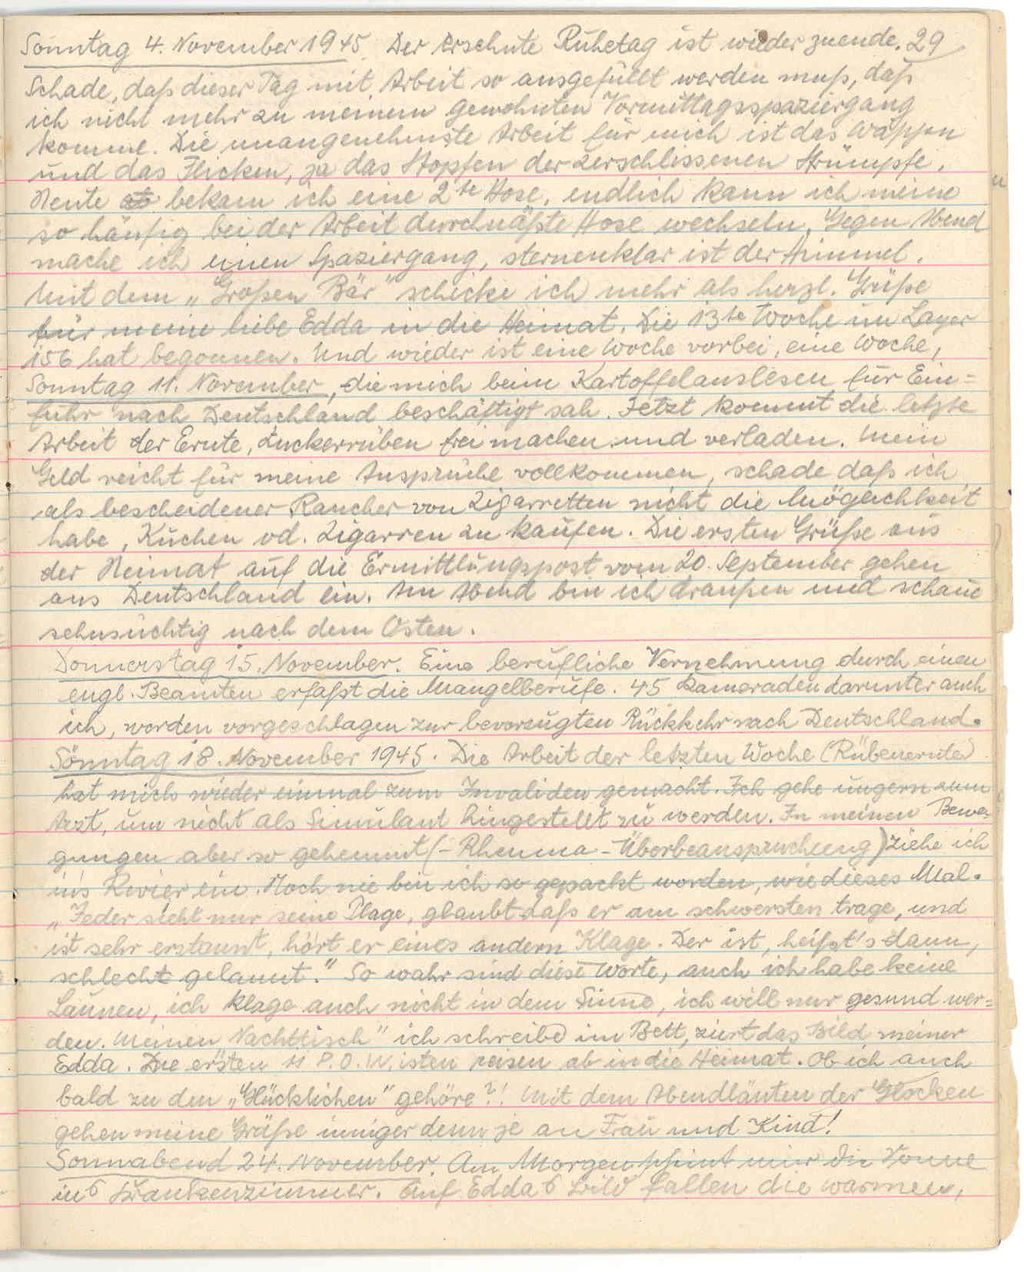 Sonntag 4. November 1945. Der ersehnte Ruhetag ist wieder zuende. 29
Schade, daß dieser Tag mit Arbeit so ausgefüllt werden muß, daß
ich nicht mehr zu meinem gewohnten Vormittagsspaziergang
komme. Die unangenehmste Arbeit für mich ist das Waschen
und das Flicken, ja das Stopfen der zerschlissenen Strümpfe.
Heute bekam ich eine 2te Hose, endlich kann ich meine
so häufig bei der Arbeit durchnäßte Hose wechseln. Gegen Abend
mache ich einen Spaziergang, sternenklar ist der Himmel.
Mit dem „Großen Bär" schicke ich mehr als herzl. Grüße
für meine liebe Edda in die Heimat. Die 13te Woche im Lager
156 hat begonnen. Und wieder ist eine Woche vorbei, eine Woche,
Sonntag 11. November, die mich beim Kartoffelauslesen für Ein=
fuhr nach Deutschland beschäftigt sah. Jetzt kommt die letzte
Arbeit der Ernte, Zuckerrüben frei machen und verladen. Mein
Geld reicht für meine Ansprüche vollkommen, schade daß ich
als bescheidener Raucher von Zigarretten nicht die Möglichkeit
habe, Kuchen od. Zigarren zu kaufen. Die ersten Grüße aus
der Heimat auf die Ermittlungspost vom 20. September gehen
aus Deutschland ein. Am Abend bin ich draußen und schaue
sehnsüchtig nach dem Osten.
Donnerstag 15. November. Eine berufliche Vernehmung durch einen
engl. Beamten erfaßt die Mangelberufe. 45 Kameraden darunter auch
ich, worden vorgeschlagen zur bevorzugten Rückkehr nach Deutschland.
Sonntag 18. November 1945. Die Arbeit der letzten Woche (Rübenernte)
hat mich wieder einmal zum Invaliden gemacht. Ich gehe ungern zum
Arzt, um nicht als Simulant hingestellt zu werden. In meinen Bewe-
gungen aber so gehemmt (- Rheuma - Überbeanspruchung) ziehe ich
ins Revier ein. Noch nie bin ich so gepackt worden, wie dieses Mal.
„Jeder sieht nur seine Plage, glaubt daß er am schwersten trage, und
ist sehr erstaunt, hört er eines andern Klage. Der ist, heißt's dann,
schlecht gelaunt." So wahr sind diese Worte, auch ich habe keine
Launen, ich klage auch nicht in dem Sinne, ich will nur gesund wer=
den. Meinen „Nachttisch" ich schreibe im Bett, ziert das Bild meiner
Edda. Die ersten 11 P.O.W.isten reisen ab in die Heimat. Ob ich auch
bald zu den „Glücklichen" gehöre?! Mit dem Abendläuten der Glocken
gehen meine Grüße inniger denn je an Frau und Kind!
Sonnabend 24. November. Am Morgen scheint mir die Sonne
ins Krankenzimmer. Auf Edda's Bild fallen die warmen,